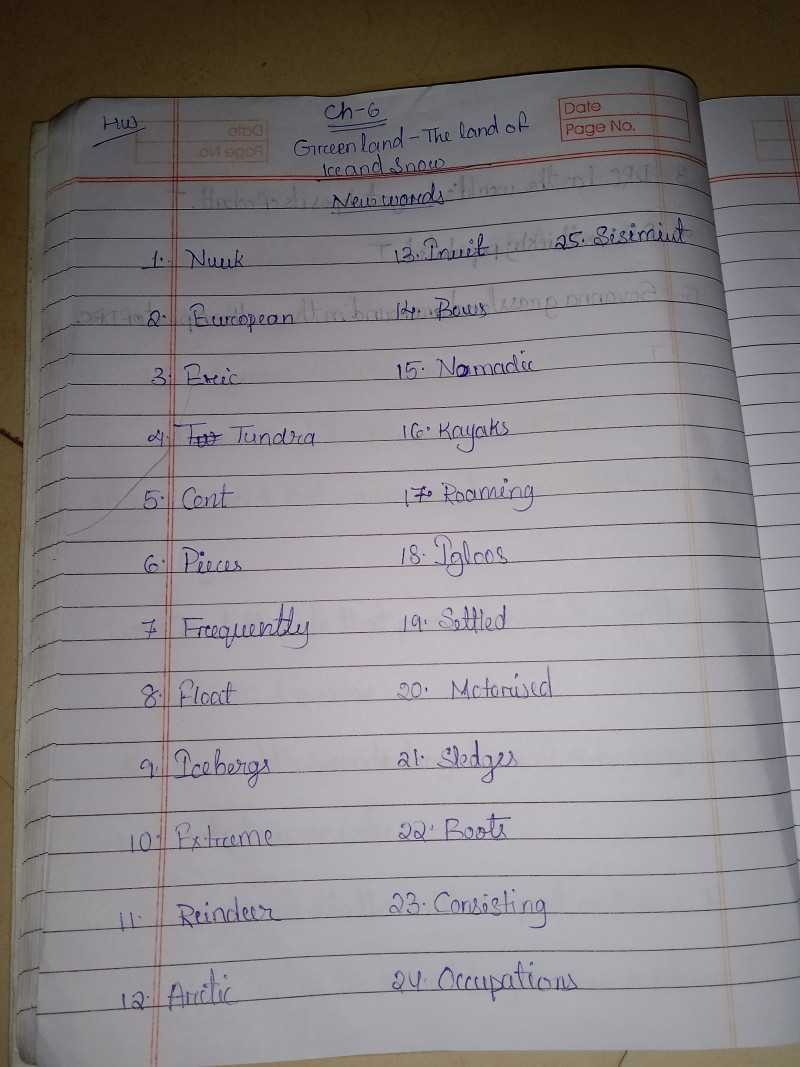 HW
Ch-6
Date
Page No.
Greenland - The land of
Ice and Snow
New words
1. Nuuk
2. European
3. Eric
4. Tundra
5. Cent
6. Pieces
7 Frequently
8. Float
9. Icebergs
10. Extreme
11. Reindeer
12. Arctic
13. Inuit
14. Bows
15. Nomadic
16. Kayaks
17. Roaming
18. Igloos
19. Settled
20. Motorised
21. Sledges
22. Boots
23. Consisting
24. Occupations
25. Sisimiut